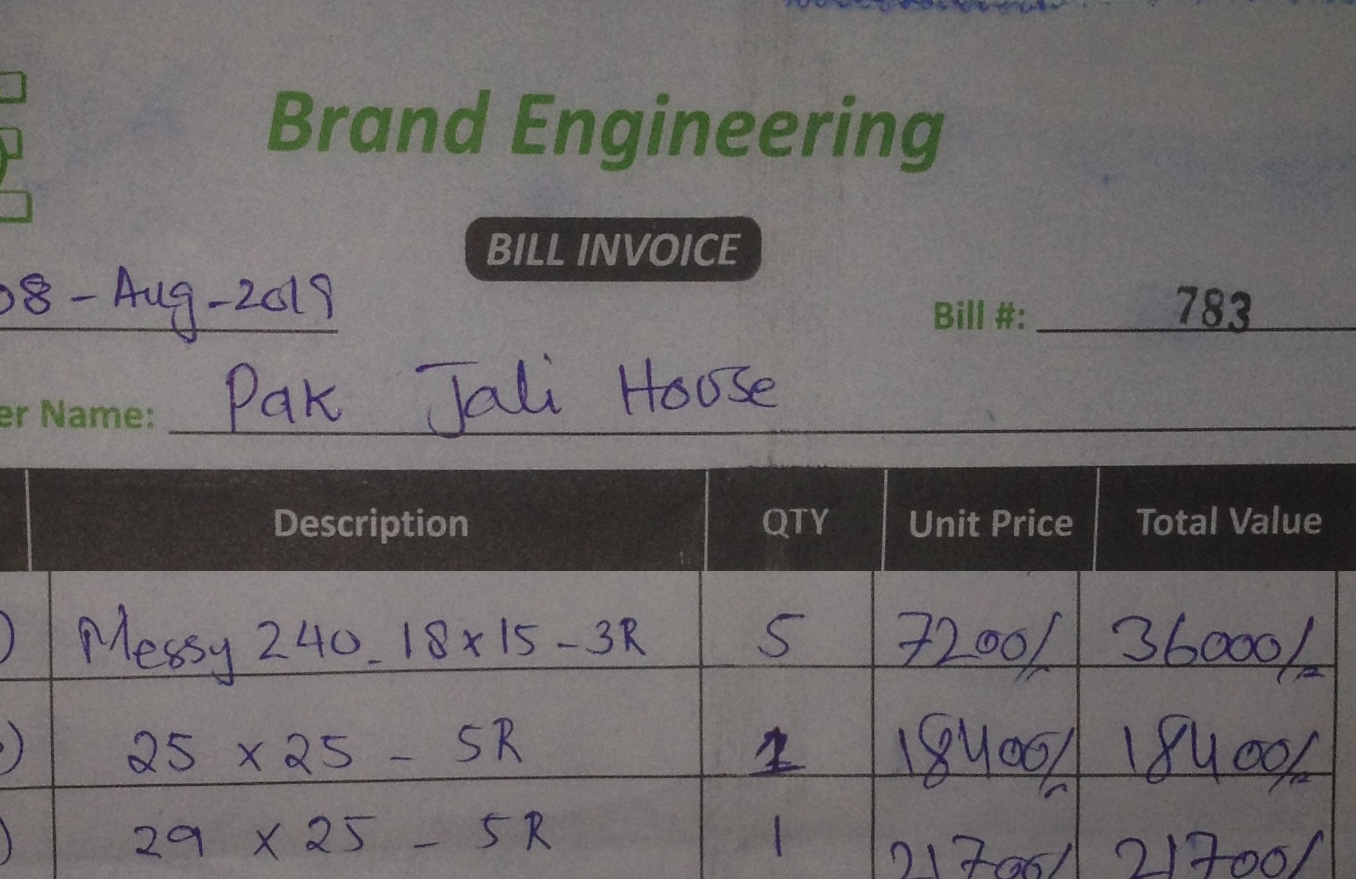 Brand Engineering
BILL INVOICE
08-Aug-2019 Bill #: 783
er Name: Pak Jali House
Description QTY Unit Price Total Value
) Messy 240_18x15-3R 5 7200/- 36000/-
) 25 x 25 - 5R 1 18400/- 18400/-
) 29 x 25 - 5R 1 21700/ 21700/